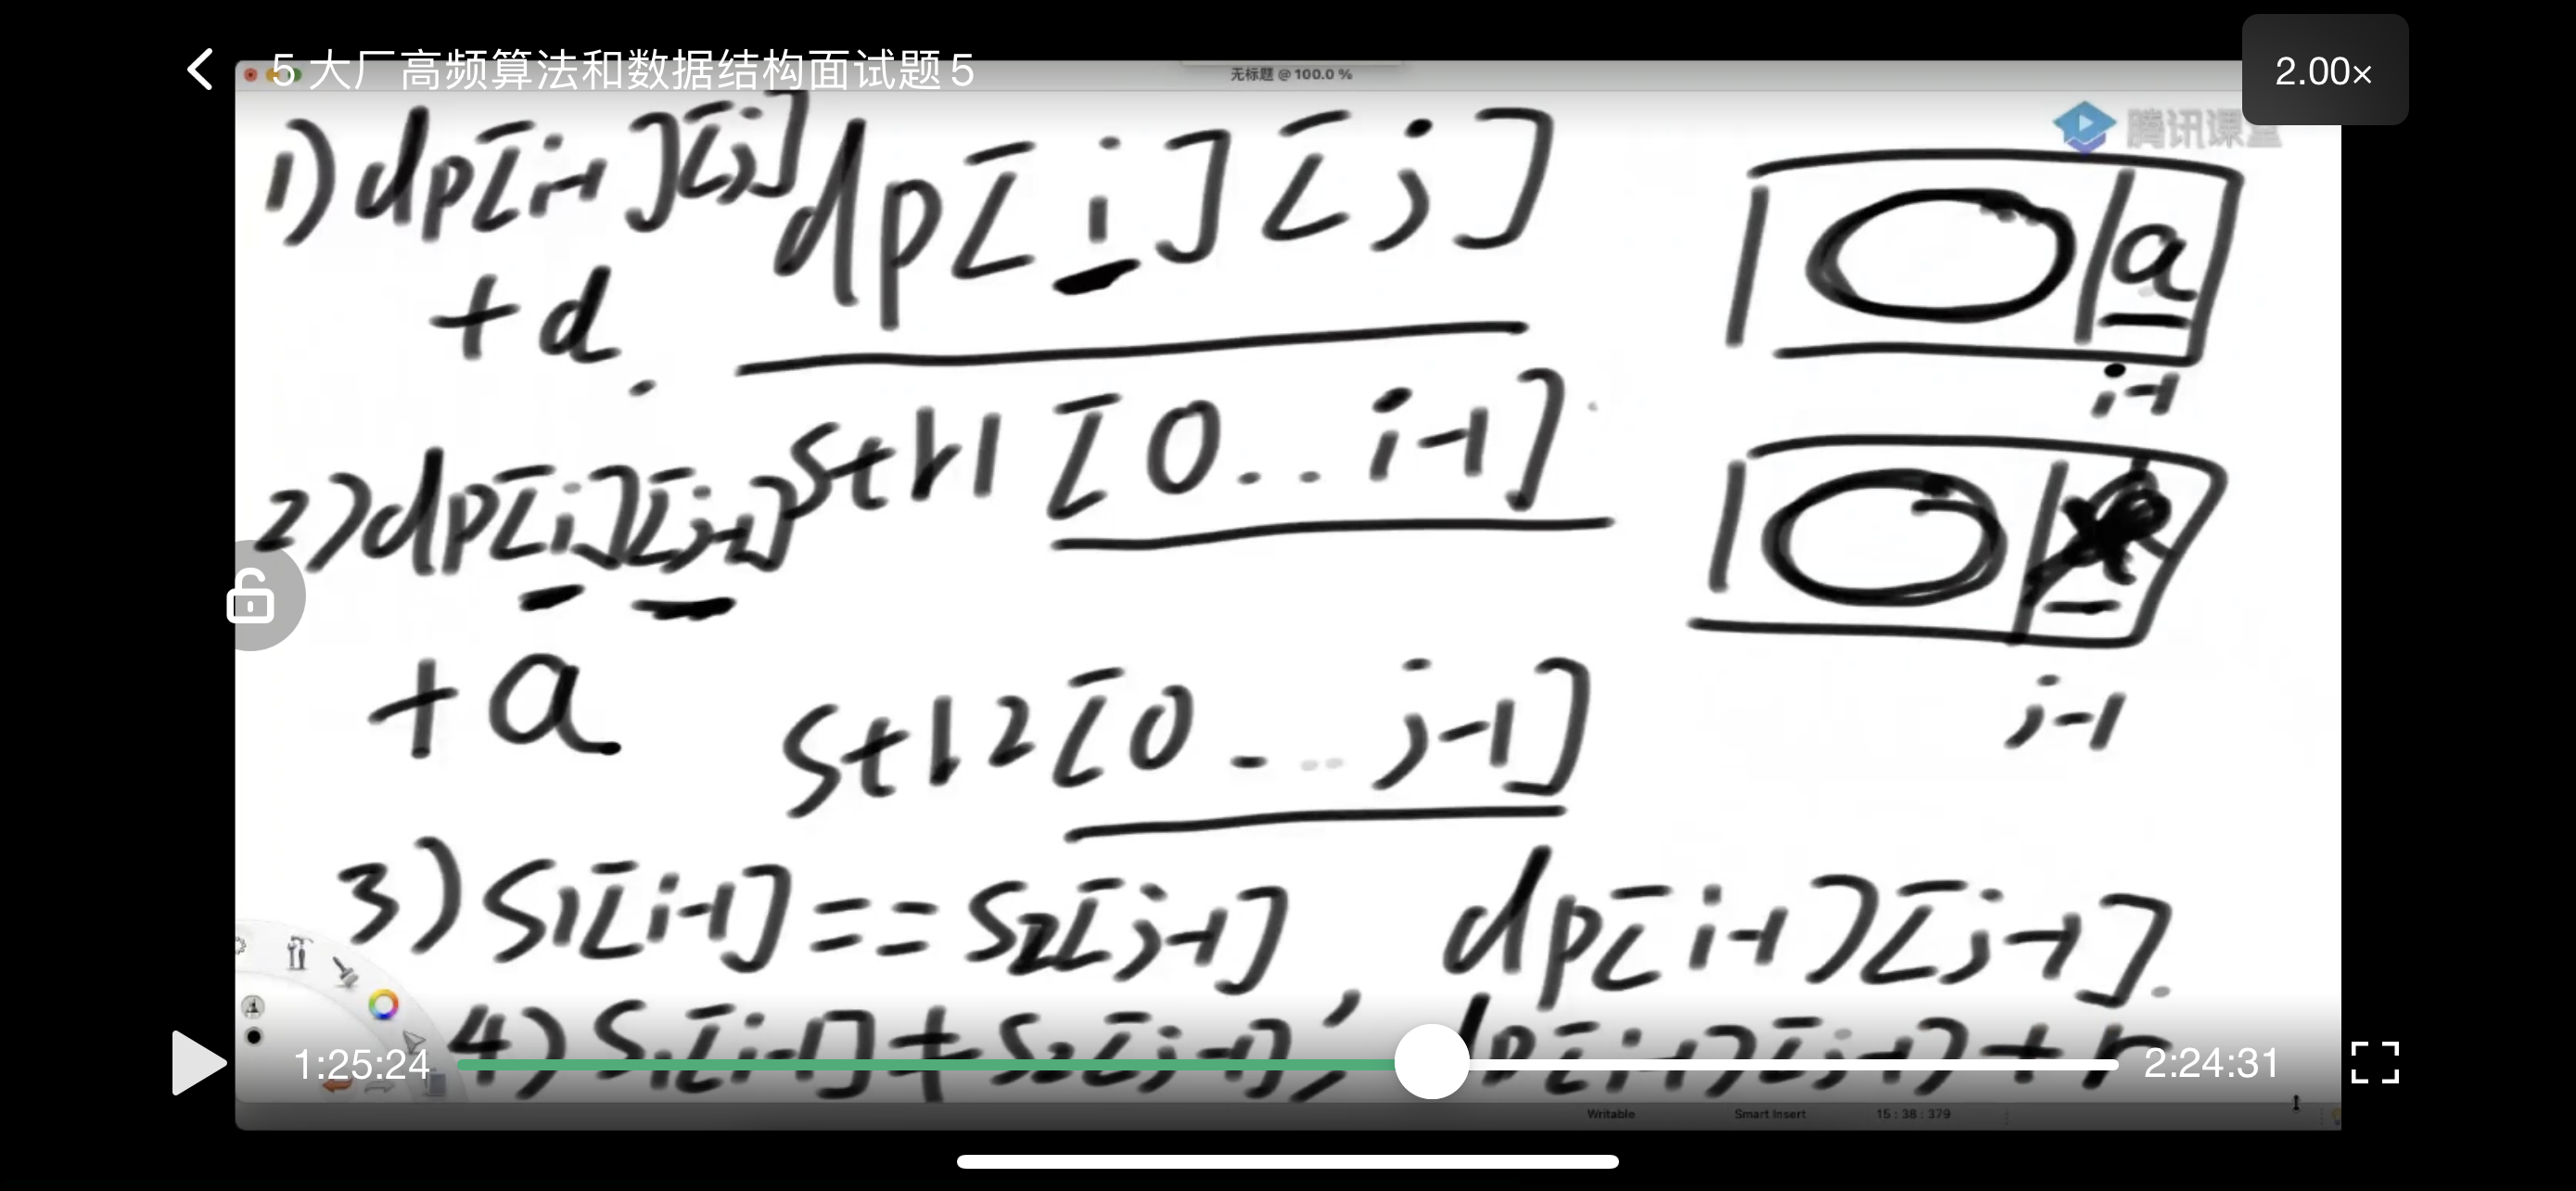 5 大厂高频算法和数据结构面试题5
2.00×
无标题 @ 100.0 %
腾讯课堂
1) dp[i-1][j]
+ d
dp[i][j]
a
i-1
str1[0..i-1]
2) dp[i][j-1]
+ a
j-1
str2[0...j-1]
3) S1[i-1] == S2[j-1] dp[i-1][j-1]
4) S1[i-1] ≠ S2[j-1], dp[i-1][j-1] + r
1:25:24
2:24:31
Writable
Smart Insert
15 : 38 : 379